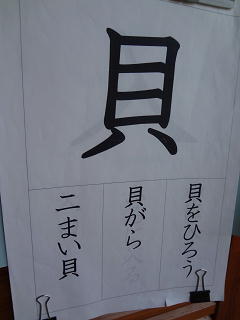 貝
貝をひろう
貝がら
二まい貝